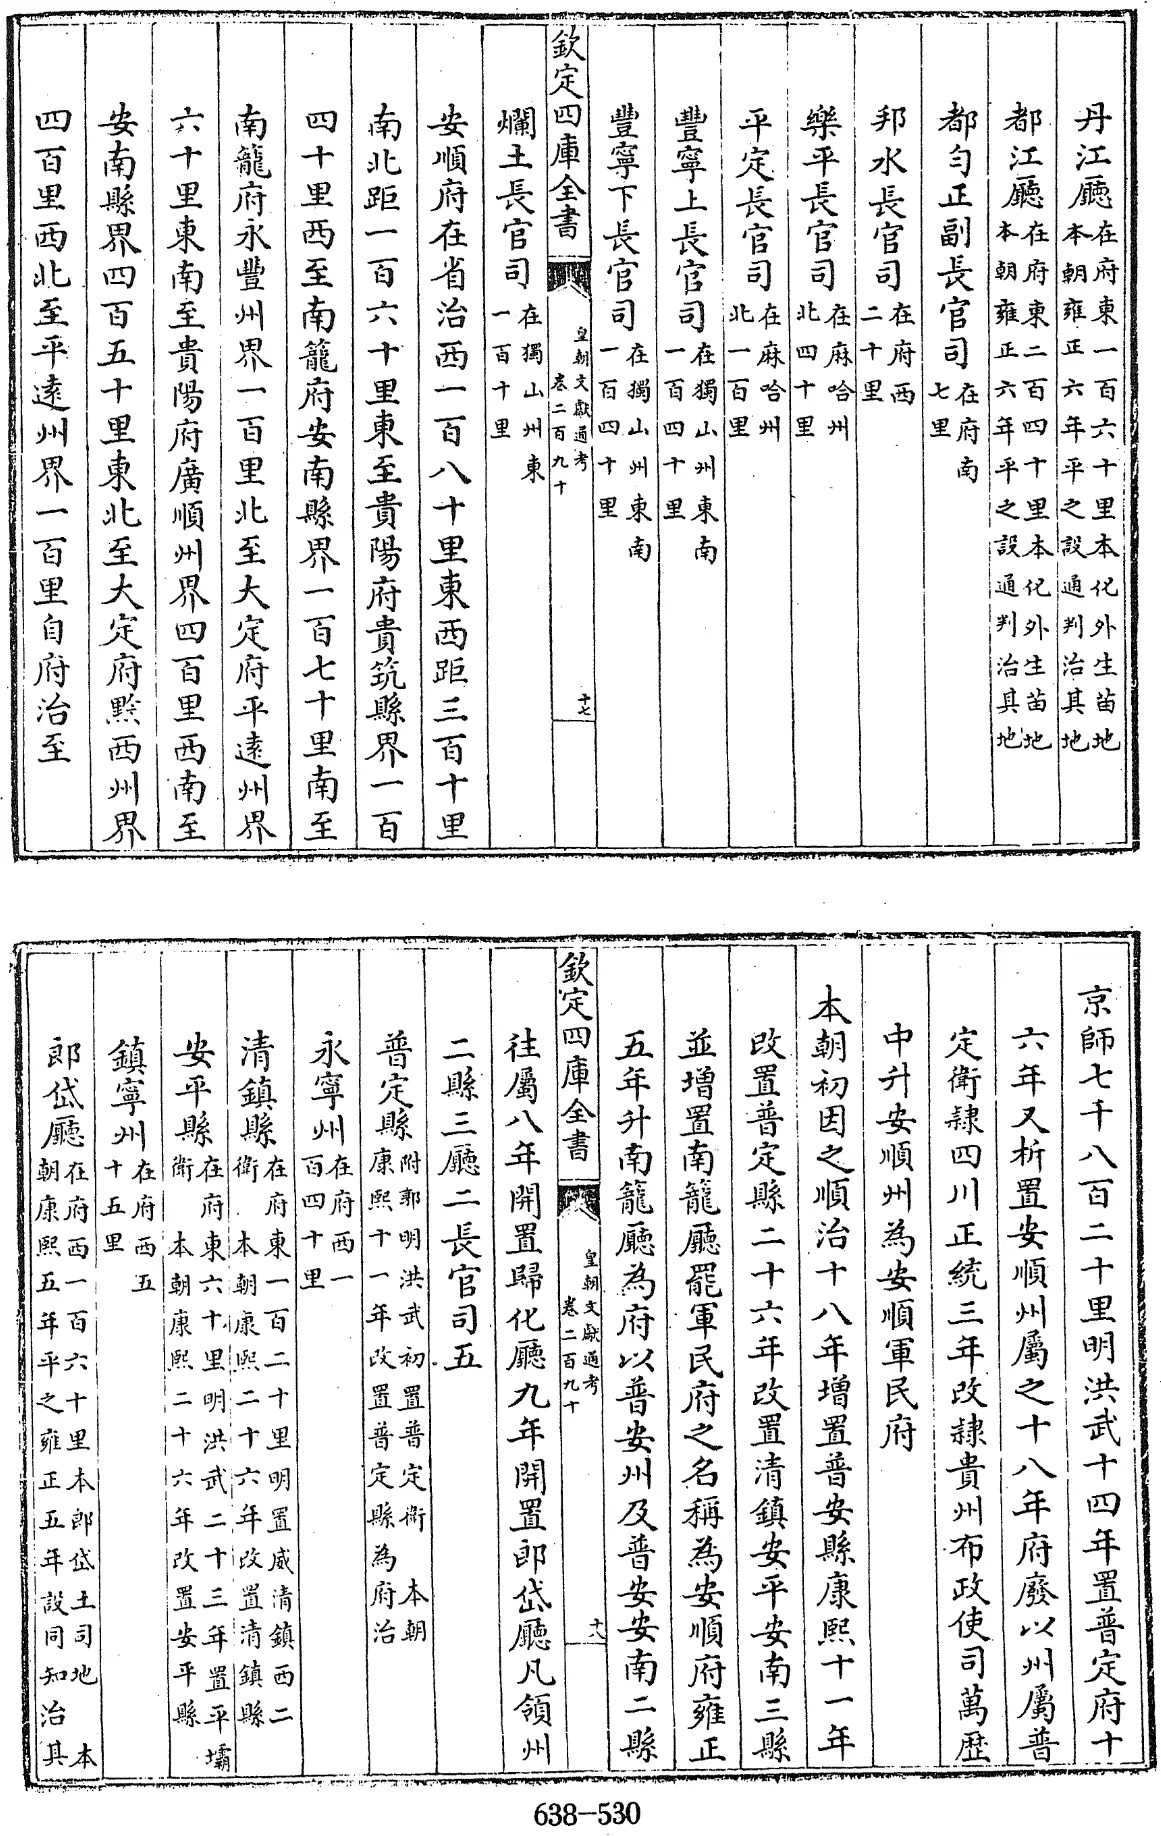 丹江廳在府東一百六十里本化外生苗地本朝雍正六年平之設通判治其地
都江廳在府東二百四十里本化外生苗地本朝雍正六年平之設通判治其地
都勻正副長官司在府南七里
邦水長官司在府西二十里
樂平長官司在麻哈州北四十里
平定長官司在麻哈州北一百里
豐寧上長官司在獨山州東南一百四十里
豐寧下長官司在獨山州東南一百四十里
欽定四庫全書 皇朝文獻通考卷二百九十 十七
爛土長官司在獨山州東一百十里
安順府在省治西一百八十里東西距三百十里
南北距一百六十里東至貴陽府貴筑縣界一百
四十里西至南籠府安南縣界一百七十里南至
南籠府永豐州界一百里北至大定府平遠州界
六十里東南至貴陽府廣順州界四百里西南至
安南縣界四百五十里東北至大定府黔西州界
四百里西北至平遠州界一百里自府治至
京師七千八百二十里明洪武十四年置普定府十
六年又析置安順州屬之十八年府廢以州屬普
定衛隸四川正統三年改隸貴州布政使司萬歷
中升安順州為安順軍民府
本朝初因之順治十八年增置普安縣康熙十一年
改置普定縣二十六年改置清鎮安平安南三縣
並增置南籠廳罷軍民府之名稱為安順府雍正
五年升南籠廳為府以普安州及普安安南二縣
欽定四庫全書 皇朝文獻通考卷二百九十 十八
往屬八年開置歸化廳九年開置郎岱廳凡領州
二縣三廳二長官司五
普定縣附郭明洪武初置普定衛 本朝康熙十一年改置普定縣為府治
永寧州在府西一百四十里
清鎮縣在府東一百二十里明置威清鎮西二衛 本朝康熙二十六年改置清鎮縣
安平縣在府東六十里明洪武二十三年置平壩衛 本朝康熙二十六年改置安平縣
鎮寧州在府西五十五里
郎岱廳在府西一百六十里本郎岱土司地 本朝康熙五年平之雍正五年設同知治其
638-530